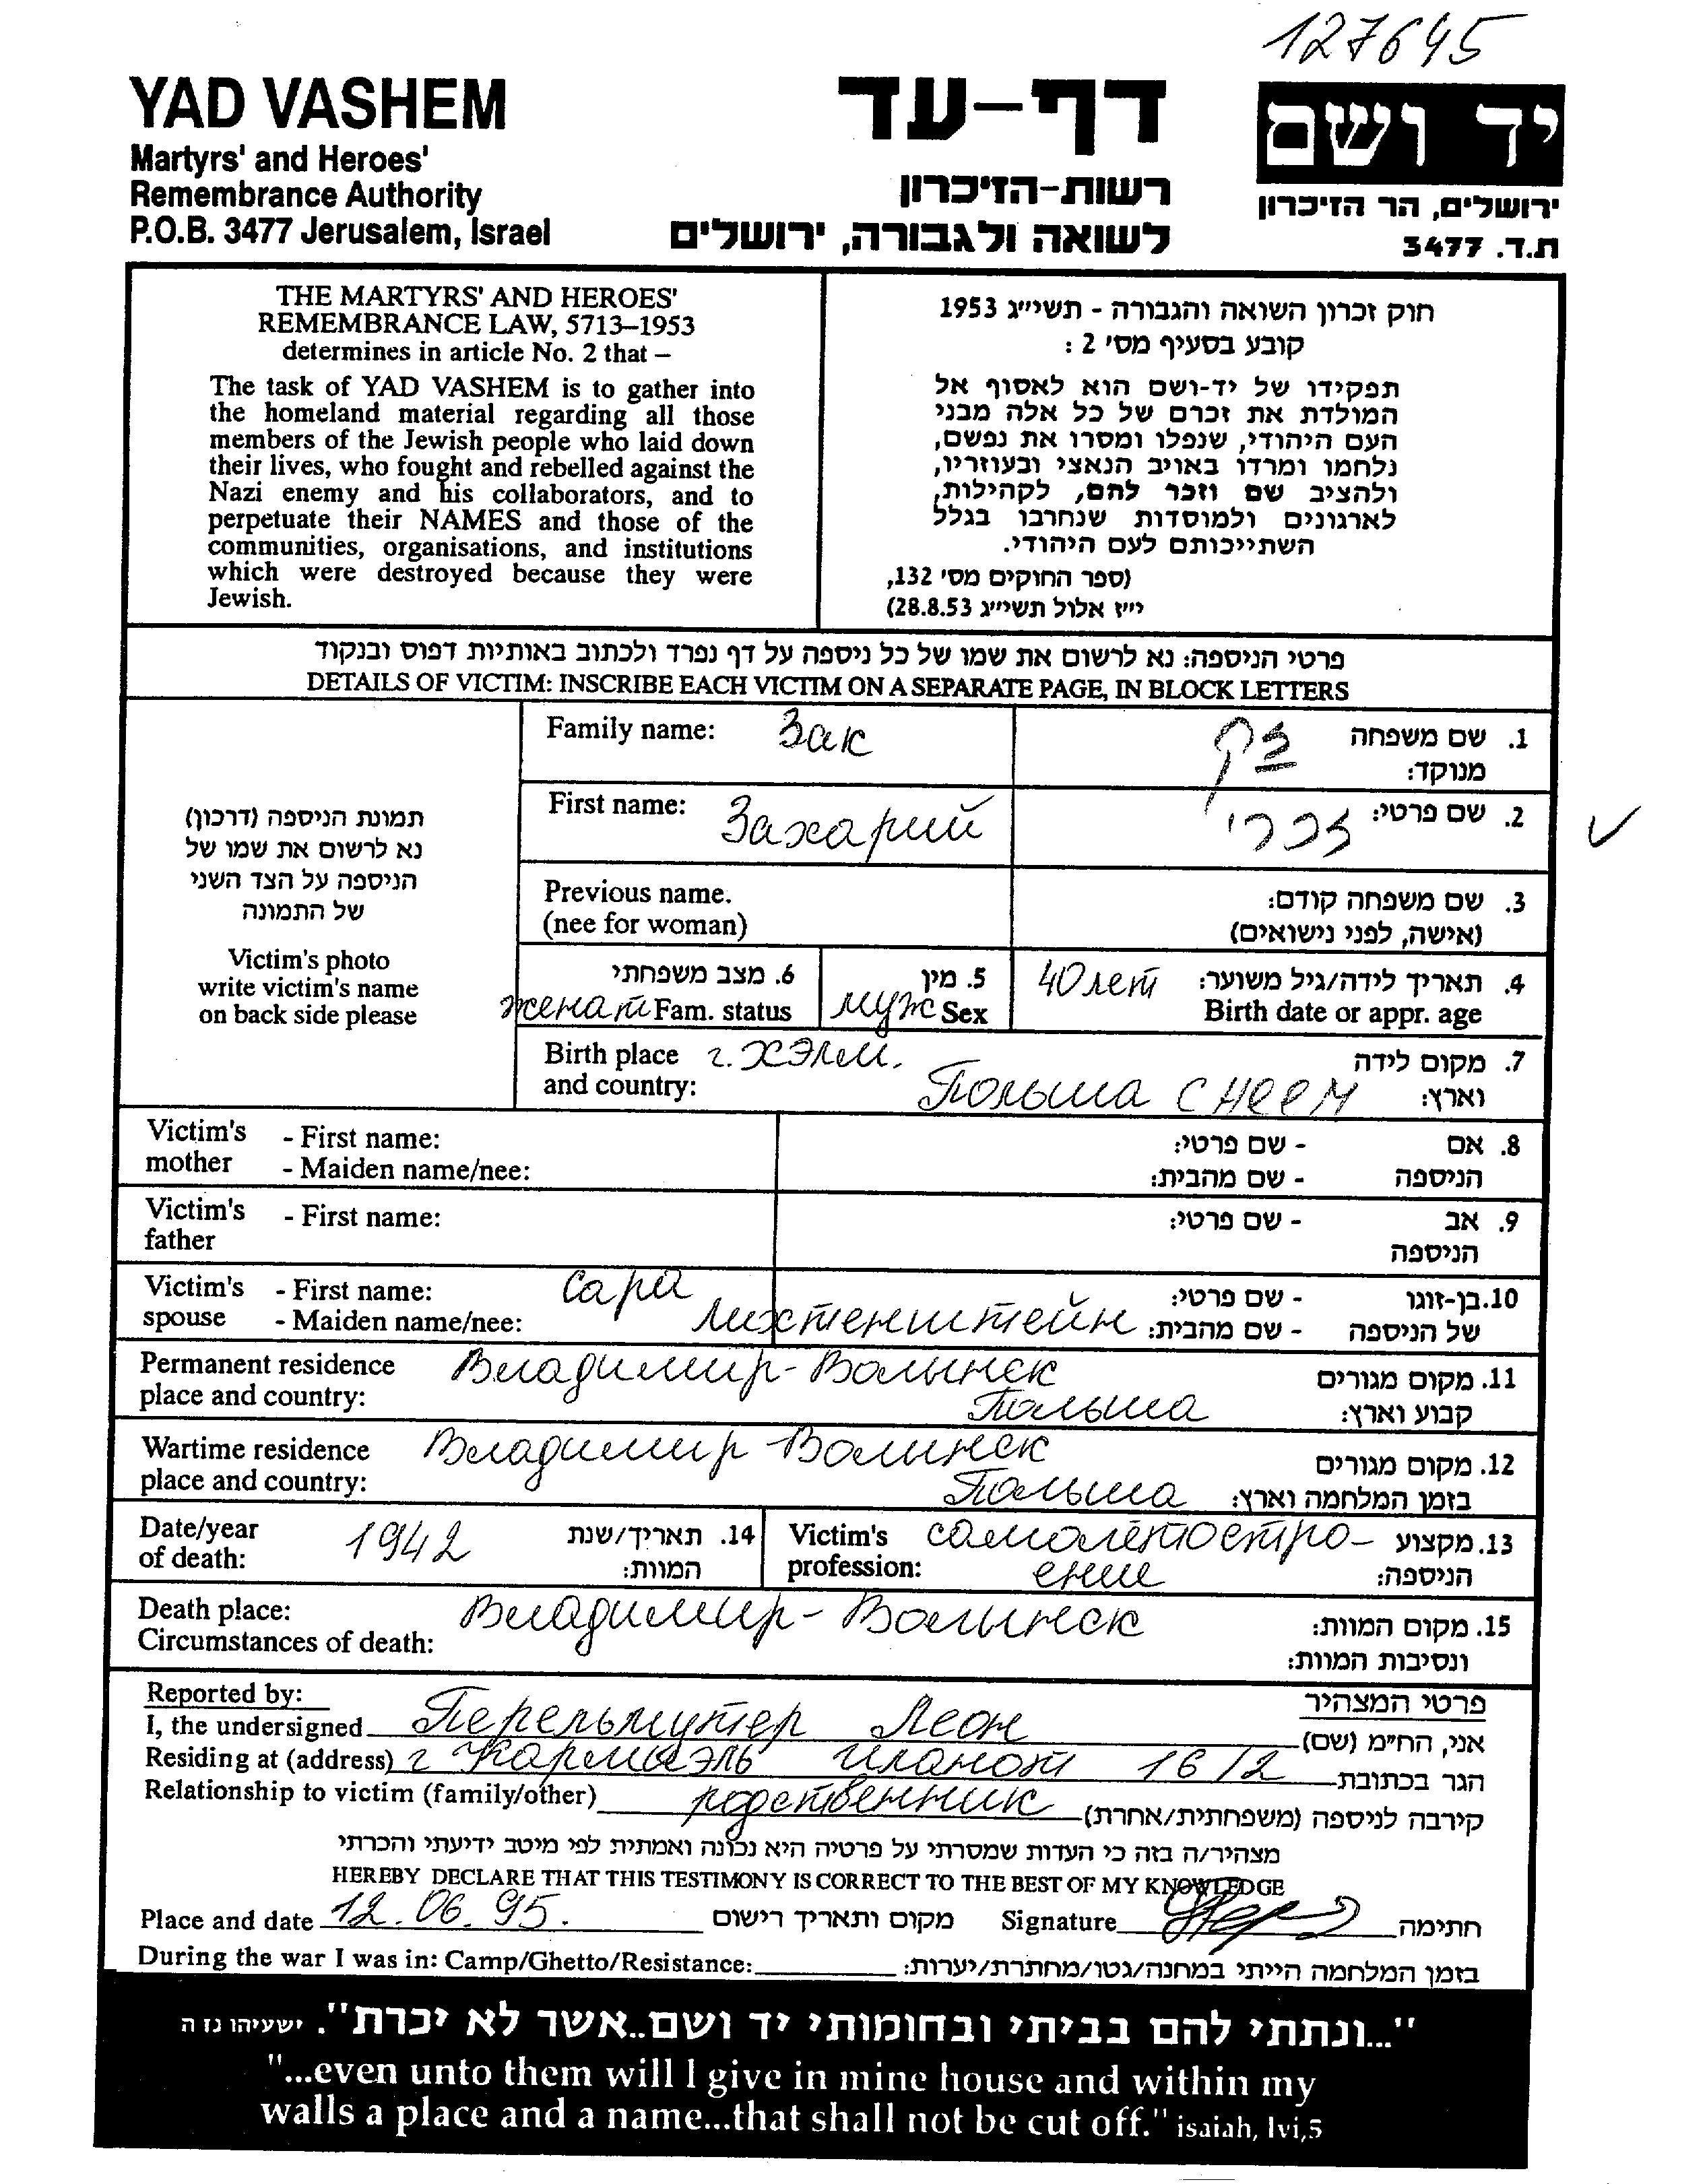 127645
YAD VASHEM
Martyrs' and Heroes'
Remembrance Authority
P.O.B. 3477 Jerusalem, Israel
דף-עד
רשות-הזיכרון
לשואה ולגבורה, ירושלים
יד ושם
ירושלים, הר הזיכרון
ת.ד. 3477
THE MARTYRS' AND HEROES'
REMEMBRANCE LAW, 5713–1953
determines in article No. 2 that –
The task of YAD VASHEM is to gather into
the homeland material regarding all those
members of the Jewish people who laid down
their lives, who fought and rebelled against the
Nazi enemy and his collaborators, and to
perpetuate their NAMES and those of the
communities, organisations, and institutions
which were destroyed because they were
Jewish.
חוק זכרון השואה והגבורה - תשי״ג 1953
קובע בסעיף מס' 2 :
תפקידו של יד-ושם הוא לאסוף אל
המולדת את זכרם של כל אלה מבני
העם היהודי, שנפלו ומסרו את נפשם,
נלחמו ומרדו באויב הנאצי ובעוזריו,
ולהציב שם וזכר להם, לקהילות,
לארגונים ולמוסדות שנחרבו בגלל
השתייכותם לעם היהודי.
(ספר החוקים מס' 132,
י״ז אלול תשי״ג 28.8.53)
פרטי הניספה: נא לרשום את שמו של כל ניספה על דף נפרד ולכתוב באותיות דפוס ובנקוד
DETAILS OF VICTIM: INSCRIBE EACH VICTIM ON A SEPARATE PAGE, IN BLOCK LETTERS
תמונת הניספה (דרכון)
נא לרשום את שמו של
הניספה על הצד השני
של התמונה
Victim's photo
write victim's name
on back side please
Family name: Зак זק 1. שם משפחה
מנוקד:
First name: Захарий זכרי 2. שם פרטי:
Previous name. 3. שם משפחה קודם:
(nee for woman) (אישה, לפני נישואים)
6. מצב משפחתי 5. מין 40 лет 4. תאריך לידה/גיל משוער:
женат Fam. status муж Sex Birth date or appr. age
Birth place г. ХЭЛМ. 7. מקום לידה
and country: Польша CHEEM וארץ:
Victim's - First name: - שם פרטי: 8. אם
mother - Maiden name/nee: - שם מהבית: הניספה
Victim's - First name: - שם פרטי: 9. אב
father הניספה
Victim's - First name: Сара - שם פרטי: 10. בן-זוגו
spouse - Maiden name/nee: Лихтенштейн - שם מהבית: של הניספה
Permanent residence Владимир-Волынск 11. מקום מגורים
place and country: Польша קבוע וארץ:
Wartime residence Владимир-Волынск 12. מקום מגורים
place and country: Польша בזמן המלחמה וארץ:
Date/year 1942 14. תאריך/שנת Victim's самолётостро- 13. מקצוע
of death: המוות: profession: ение הניספה:
Death place: Владимир-Волынск 15. מקום המוות:
Circumstances of death: ונסיבות המוות:
Reported by: פרטי המצהיר
I, the undersigned Перельмутер Леон אני, הח״מ (שם)
Residing at (address) г Кармиэль иланот 16/2 הגר בכתובת
Relationship to victim (family/other) родственник קירבה לניספה (משפחתית/אחרת)
מצהיר/ה בזה כי העדות שמסרתי על פרטיה היא נכונה ואמתית לפי מיטב ידיעתי והכרתי
HEREBY DECLARE THAT THIS TESTIMONY IS CORRECT TO THE BEST OF MY KNOWLEDGE
Place and date 12.06.95. מקום ותאריך רישום Signature חתימה
During the war I was in: Camp/Ghetto/Resistance: בזמן המלחמה הייתי במחנה/גטו/מחתרת/יערות:
"...ונתתי להם בביתי ובחומותי יד ושם..אשר לא יכרת". ישעיהו נו ה
"...even unto them will I give in mine house and within my
walls a place and a name...that shall not be cut off." isaiah, lvi,5